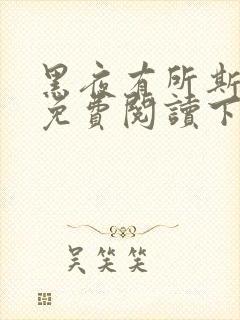 黑夜有所斯
免費閱讀下
吴笑笑